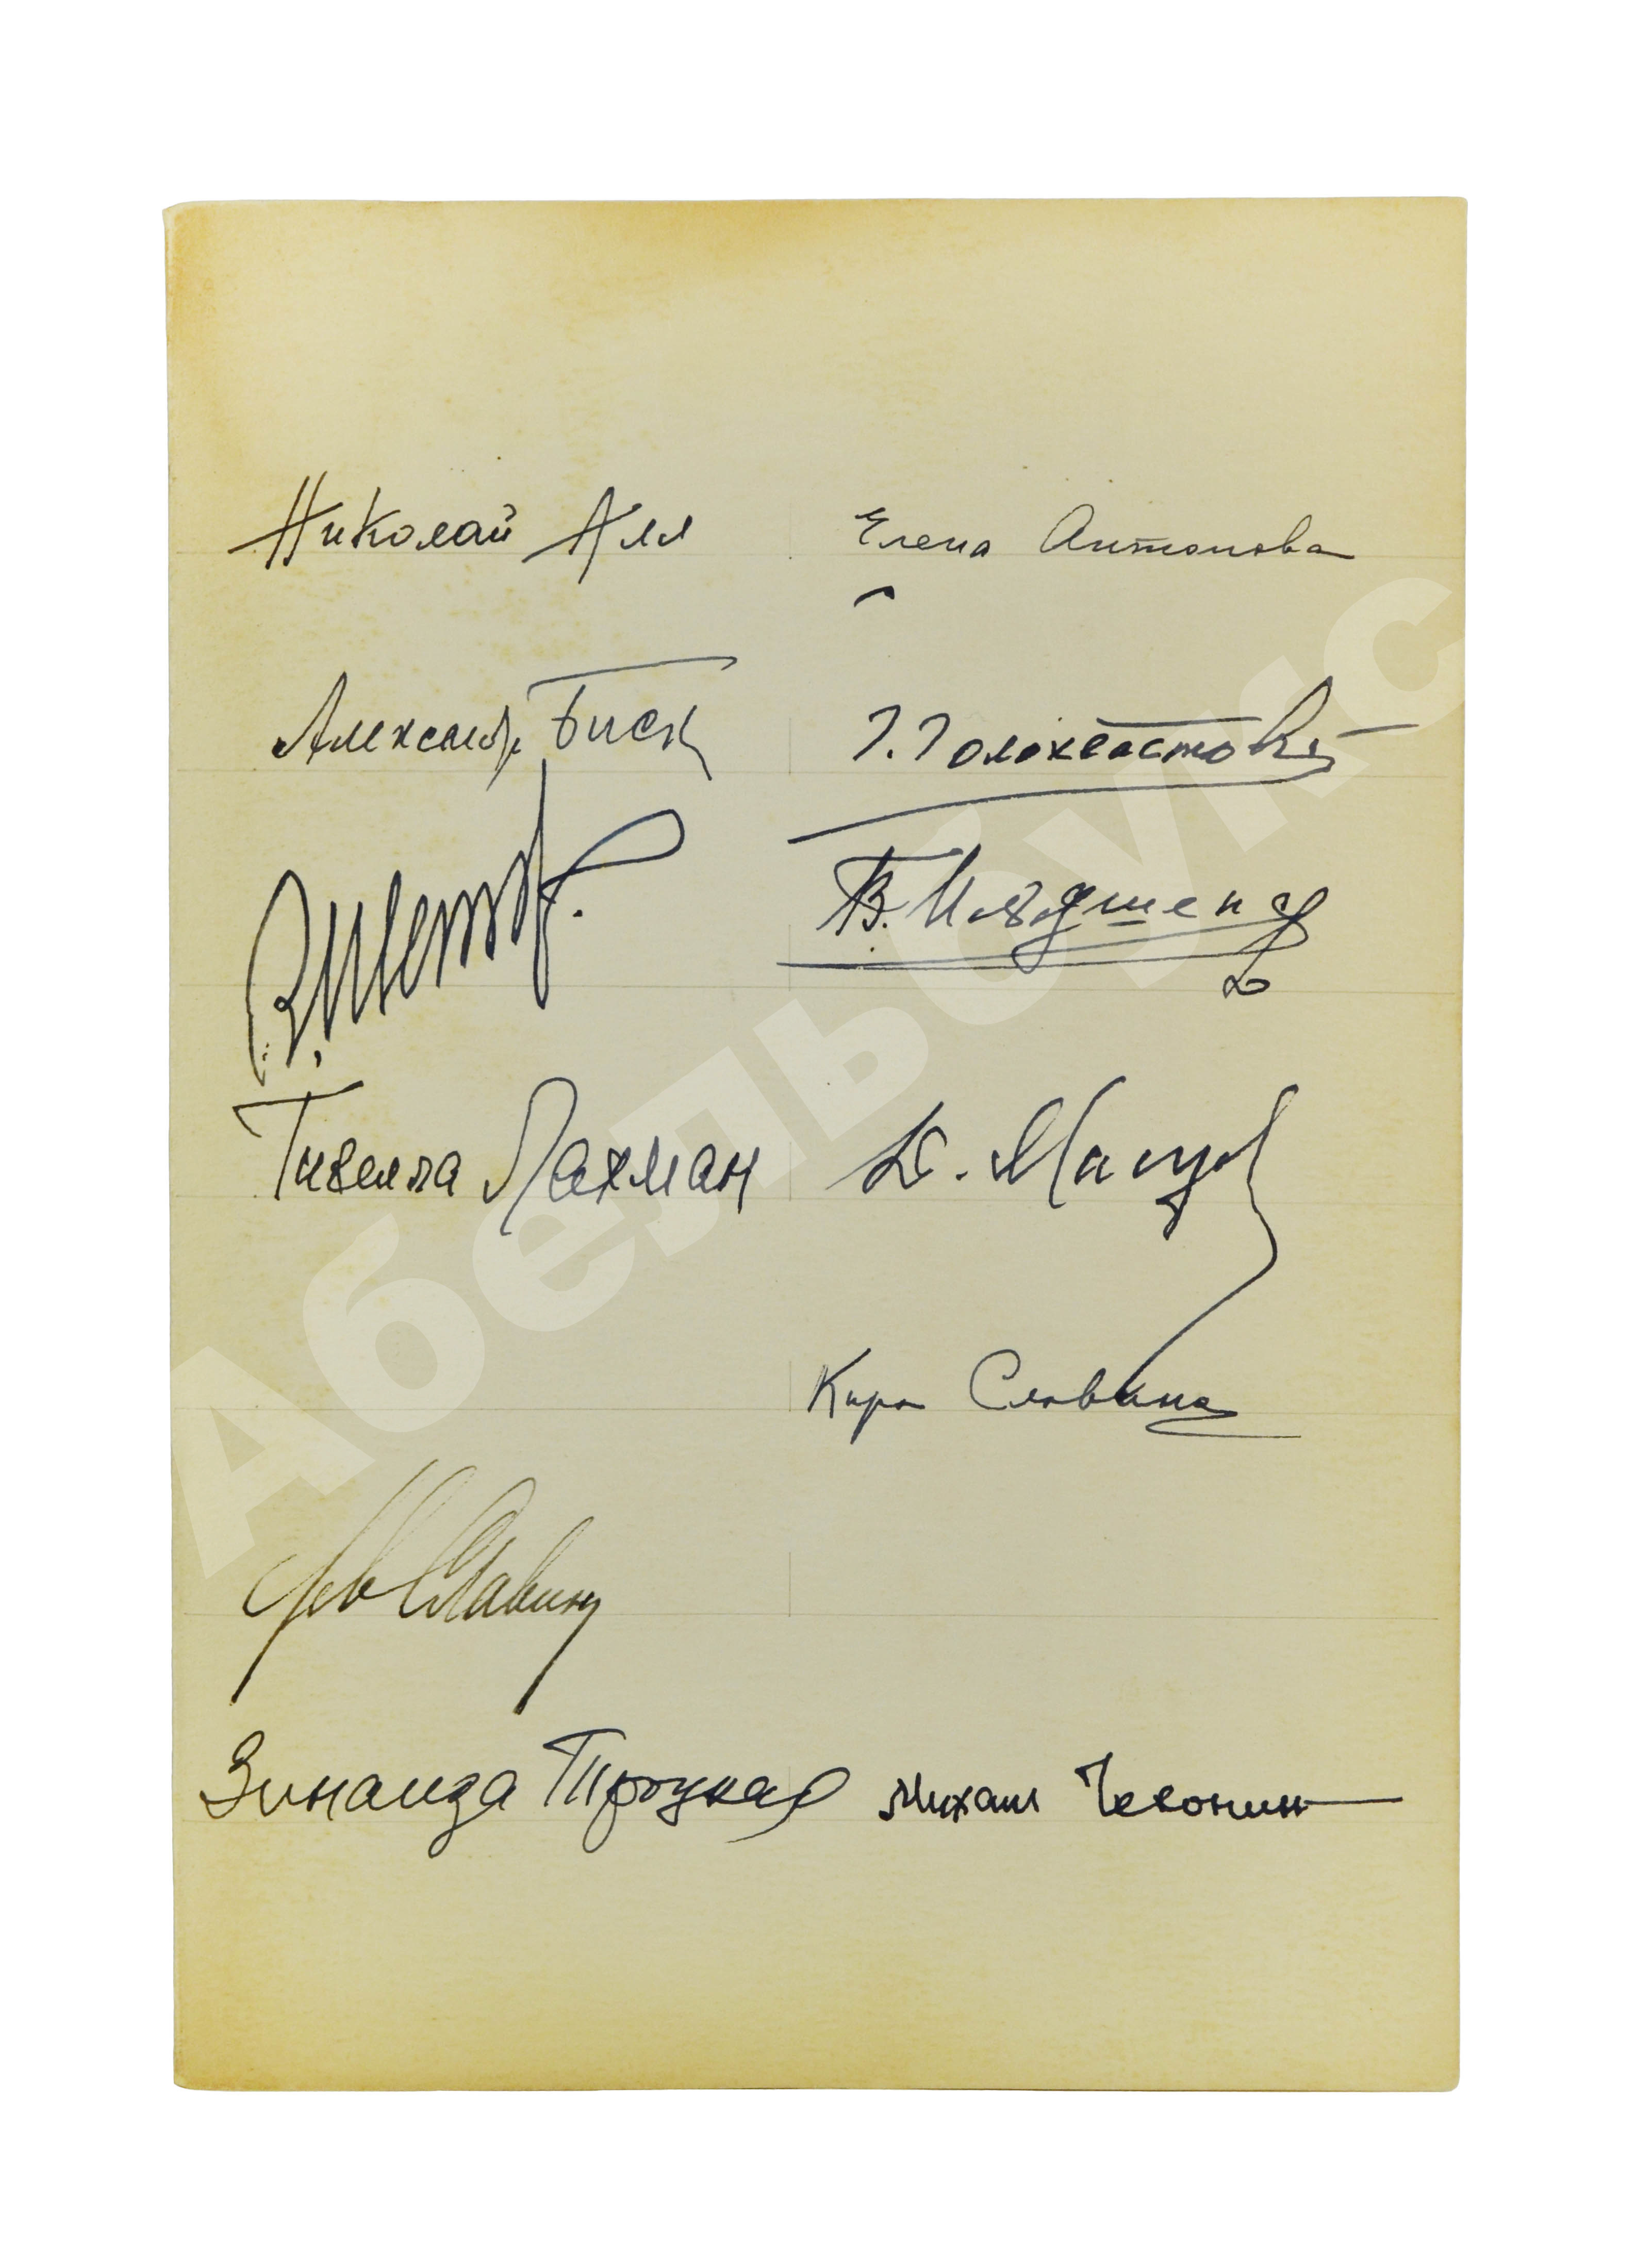 Николай Алл Елена Антонова
Александр Биск Г. Голохвастов
В. Ильяшенко
Тизелла Лахман
Кира Славина
Лев Славин
Зинаида Троцкая Михаил Чехонин
Абельбукс